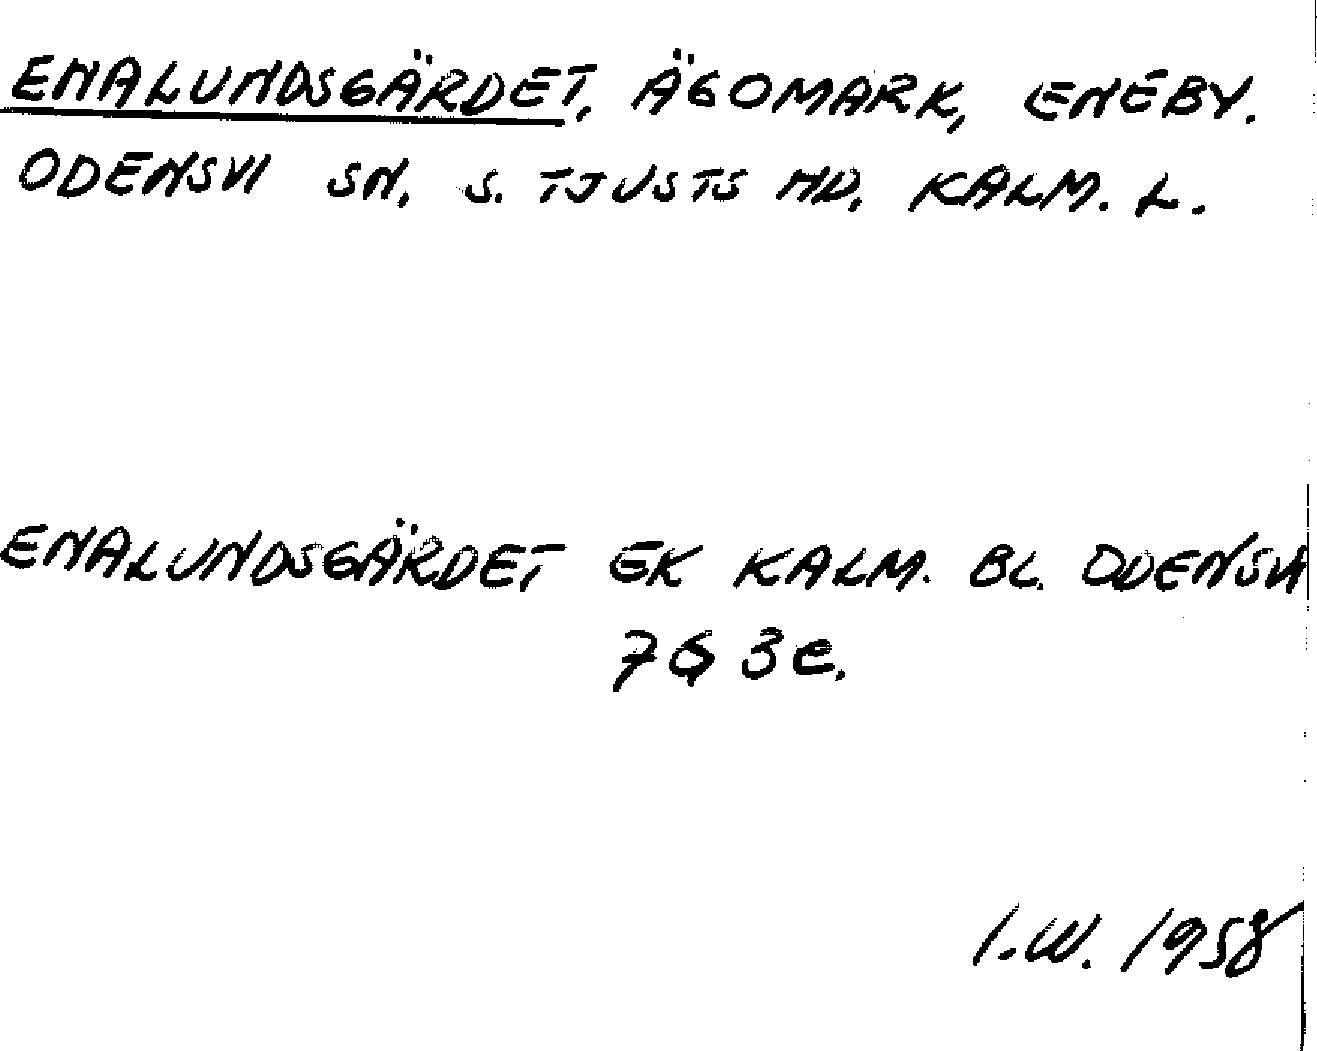 ENALUNDSGÄRDET, ÄGOMARK, ENEBY.
ODENSVI SN, S. TJUSTS HD, KALM. L.
ENALUNDSGÄRDET EK KALM. BL. ODENSVI
7G 3e.
I.W. 1958